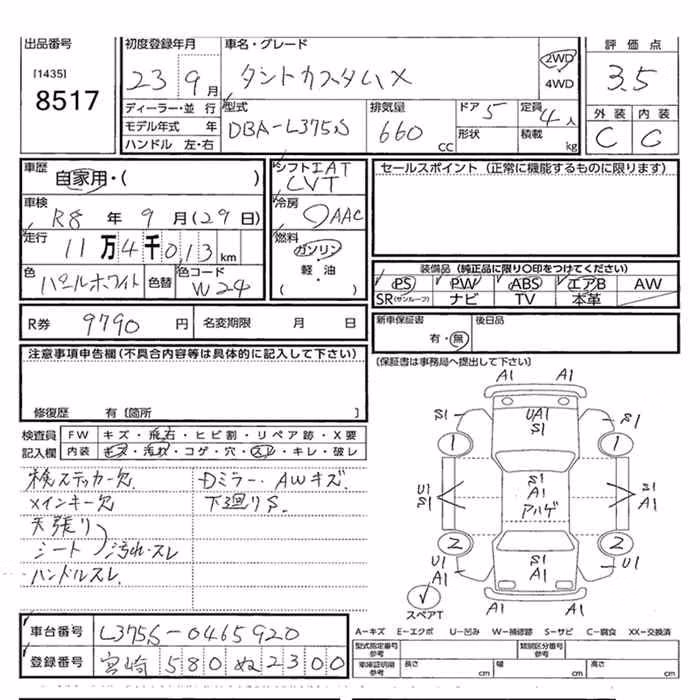 出品番号 初度登録年月 車名・グレード 評価点
[1435]
8517
23 9月 タントカスタムX 2WD 4WD 3.5
ディーラー・並行 型式 排気量 ドア 5 定員 4人 外装 内装
モデル年式 年 DBA-L375S 660 cc 形状 積載 kg C C
ハンドル 左・右
車歴 シフト IAT セールスポイント (正常に機能するものに限ります)
自家用・( ) CVT
車検 冷房
R8年9月(29日) AAC
走行 燃料
11万4千013km ガソリン
色 色替 色コード 軽・油 装備品 (純正品に限り○印をつけてください)
パールホワイト W24 ( ) PS PW ABS エアB AW
SR(サンルーフ) ナビ TV 本革
R券 9790円 名変期限 月 日 新車保証書 後日品
有・無
注意事項申告欄(不具合内容等は具体的に記入して下さい) (保証書は事務局へ提出して下さい)
修復歴 有[箇所 ]
検査員 FW キズ・飛石・ヒビ割・リペア跡・X要
記入欄 内装 キズ・汚れ・コゲ・穴・スレ・キレ・破レ
検ステッカー欠 Dミラー・AWキズ.
メインキー欠 下廻りS.
天張り
シート 汚れ・スレ
ハンドルスレ.
A1 A1
S1 UA1 S1
S1
1 1
S1
U1 A1 S1
S1 アハゲ A1
2 2
U1 S1 U1
A1 A1 A1
スペアT A1 A1
車台番号 L375S-0465920
登録番号 宮崎 580 ぬ2300
A-キズ E-エクボ U-凹み W-補修跡 S-サビ C-腐食 XX-交換済
型式指定番号 参考 類別区分番号 参考
車庫証明用 参考 長さ cm 幅 cm 高さ cm